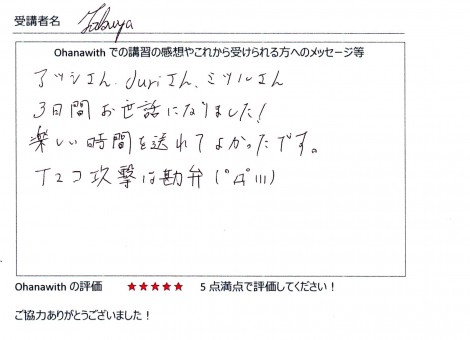 受講者名
Ohanawith での講習の感想やこれから受けられる方へのメッセージ等
アツシさん、Juriさん、ミツルさん
3日間お世話になりました!
楽しい時間を送れてよかったです。
攻撃は勘弁(ﾟДﾟ;;;)
Ohanawith の評価 ★★★★★ 5点満点で評価してください!
ご協力ありがとうございました!